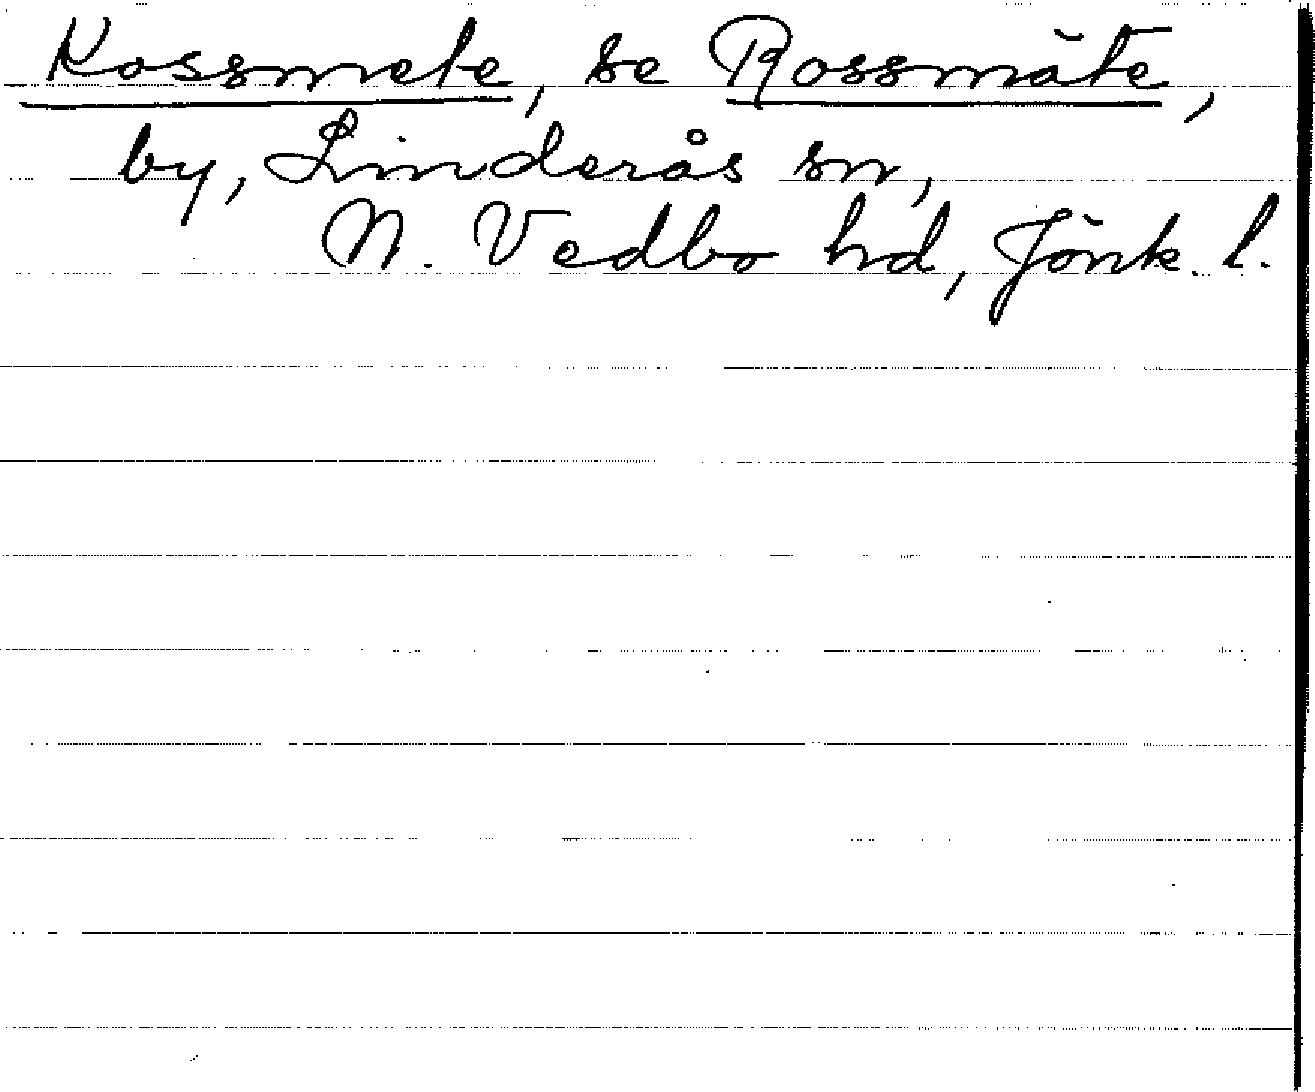 Kossmete, se Rossmäte,
by, Linderås sn,
N. Vedbo hd, Jönk. l.